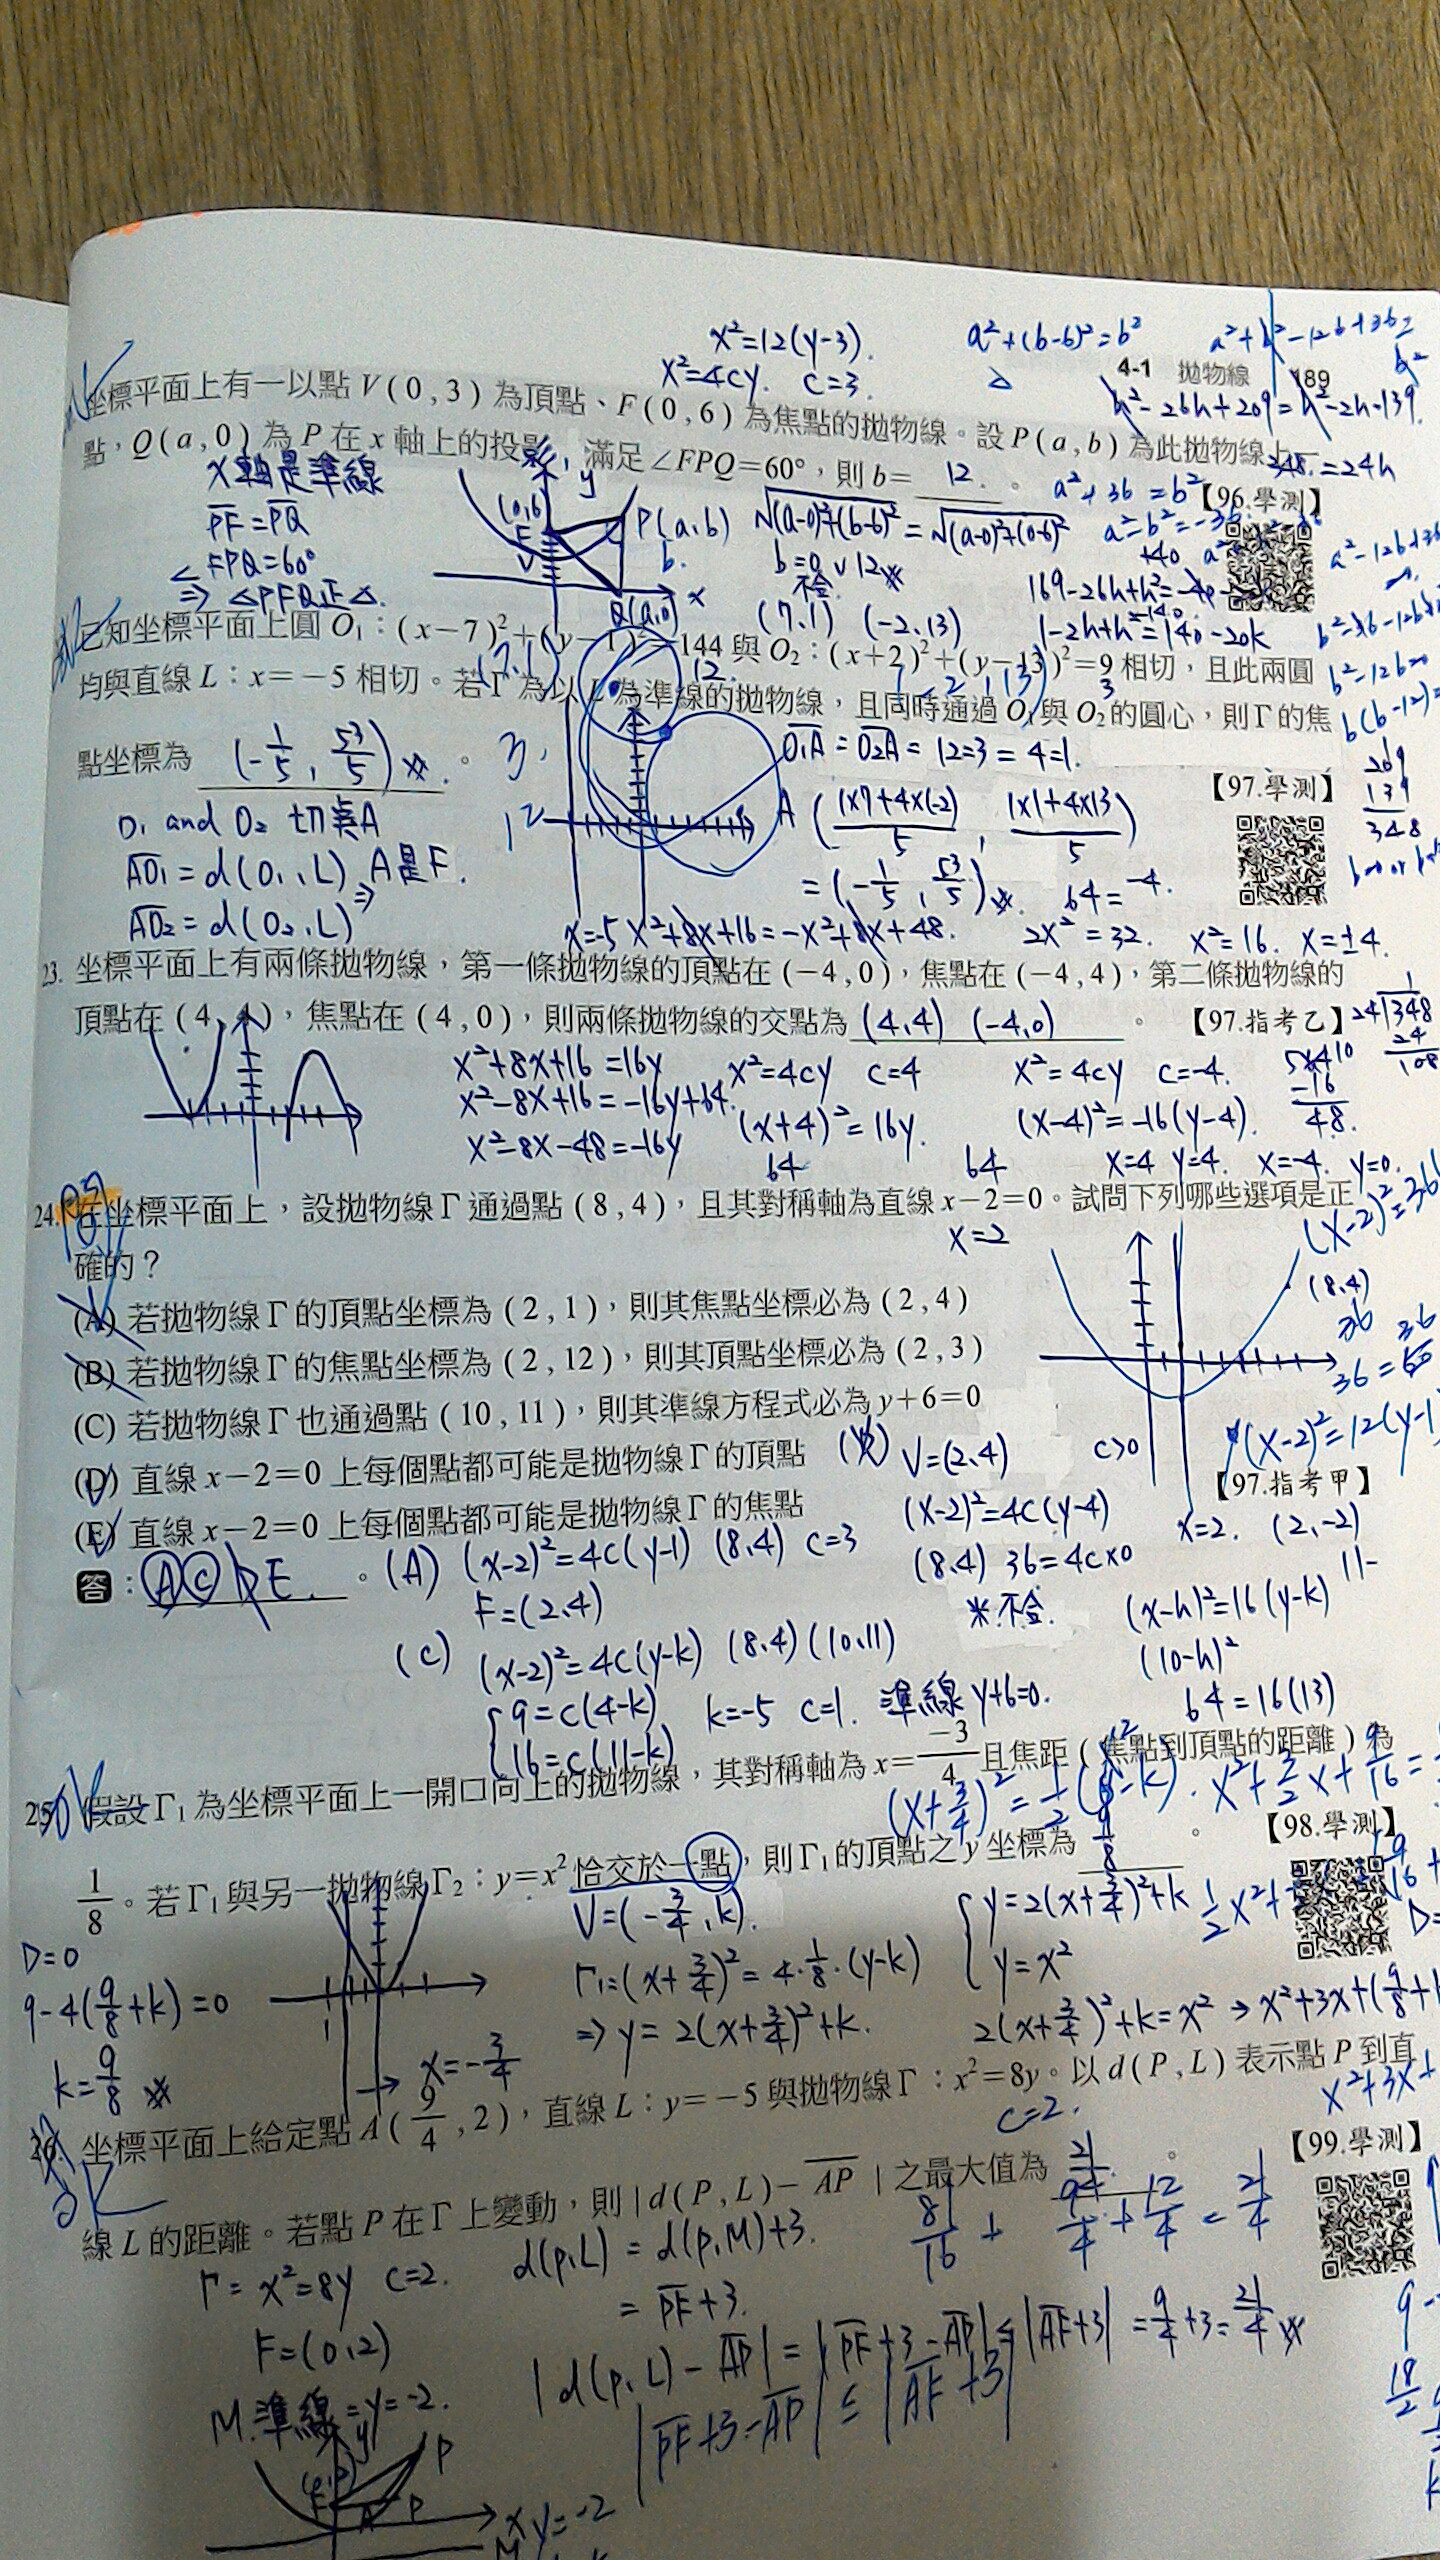 x²=12(y-3).
a²+(b-6)²=b²
x²=4cy. c=3
4-1 拋物線 189
坐標平面上有一以點 V(0,3) 為頂點、F(0,6) 為焦點的拋物線。設 P(a,b) 為此拋物線上一
點，Q(a,0) 為 P 在 x 軸上的投影，滿足∠FPQ=60°，則 b= 12 。
【96.學測】
X軸是準線
PF=PQ
∠FPQ=60°
⇒ △PFQ正△.
P(a,b)
Q(a,0)
√(a-0)²+(b-6)² = √(a-0)²+(0-6)²
b=0 ∨ 12
不合
a²+36=b²
(7,1) (-2,13)
已知坐標平面上圓 O₁：(x-7)²+(y-1)²=144 與 O₂：(x+2)²+(y-13)²=9 相切，且此兩圓
均與直線 L：x=-5 相切。若 Γ 為以 L 為準線的拋物線，且同時通過 O₁ 與 O₂ 的圓心，則 Γ 的焦
點坐標為 (-1/5, 53/5) 。
【97.學測】
O₁ and O₂ 切點A
AO₁=d(O₁,L) A是F.
AO₂=d(O₂,L) ⇒
O₁A = O₂A = 12=3 = 4=1.
A (1×7+4×(-2)/5, 1×1+4×13/5)
=(-1/5, 53/5)
64=-4.
x=-5
x²+8x+16=-x²+8x+48. 2x²=32. x²=16. x=±4.
23. 坐標平面上有兩條拋物線，第一條拋物線的頂點在 (-4,0)，焦點在 (-4,4)，第二條拋物線的
頂點在 (4,4)，焦點在 (4,0)，則兩條拋物線的交點為 (4,4) (-4,0) 。 【97.指考乙】
x²+8x+16=16y x²=4cy c=4 x²=4cy c=-4.
x²-8x+16=-16y+64. (x+4)²=16y. (x-4)²=-16(y-4).
x²-8x-48=-16y 64 64 x=4 y=4. x=-4. y=0.
24. 在坐標平面上，設拋物線 Γ 通過點 (8,4)，且其對稱軸為直線 x-2=0。試問下列哪些選項是正
確的？
x=2
(A) 若拋物線 Γ 的頂點坐標為 (2,1)，則其焦點坐標必為 (2,4)
(B) 若拋物線 Γ 的焦點坐標為 (2,12)，則其頂點坐標必為 (2,3)
(C) 若拋物線 Γ 也通過點 (10,11)，則其準線方程式必為 y+6=0
(D) 直線 x-2=0 上每個點都可能是拋物線 Γ 的頂點
(E) 直線 x-2=0 上每個點都可能是拋物線 Γ 的焦點
【97.指考甲】
(8,4)
V=(2,4) c>0
(x-2)²=4c(y-4) x=2. (2,-2)
(8,4) 36=4c×0
不合.
答：A C D E. 。
(A) (x-2)²=4c(y-1) (8,4) c=3
F=(2,4)
(x-h)²=16(y-k)
(10-h)²
64=16(13)
(C) (x-2)²=4c(y-k) (8,4)(10,11)
9=c(4-k) k=-5 c=1. 準線 y+6=0.
16=c(11-k)
25. 假設 Γ₁ 為坐標平面上一開口向上的拋物線，其對稱軸為 x=-3/4 且焦距（焦點到頂點的距離）為
1/8。若 Γ₁ 與另一拋物線 Γ₂：y=x² 恰交於一點，則 Γ₁ 的頂點之 y 坐標為 9/8 。
【98.學測】
D=0
9-4(9/8+k)=0
k=9/8
x=-3/4
V=(-3/4,k).
Γ₁=(x+3/4)²=4·1/8·(y-k)
⇒ y=2(x+3/4)²+k.
y=2(x+3/4)²+k
y=x²
2(x+3/4)²+k=x² → x²+3x+(9/8+k
26. 坐標平面上給定點 A(9/4,2)，直線 L：y=-5 與拋物線 Γ：x²=8y。以 d(P,L) 表示點 P 到直
線 L 的距離。若點 P 在 Γ 上變動，則 |d(P,L)-AP| 之最大值為 21/4 。
【99.學測】
c=2.
Γ= x²=8y c=2.
F=(0,2)
M.準線=y=-2.
d(P,L) = d(P,M)+3.
= PF+3.
9/4+12/4=21/4
|d(P,L)-AP|=|PF+3-AP|≤|AF+3|=9/4+3=21/4
|PF+3-AP|≤|AF+3|
y=-2